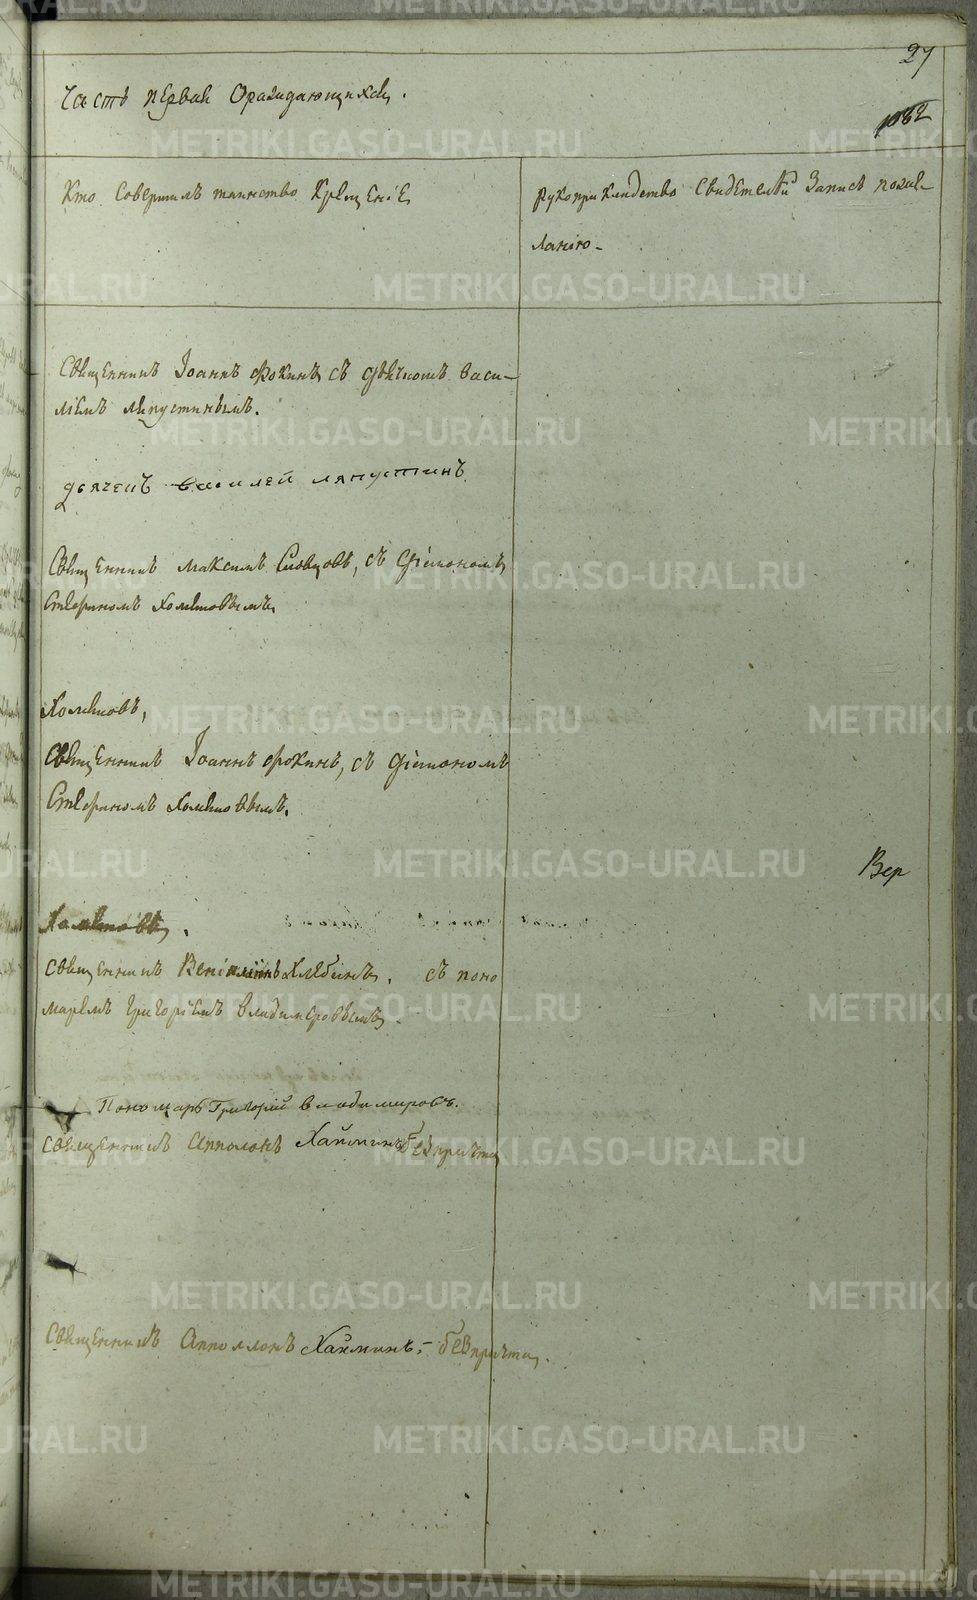 27
Часть первая О раждающихся.
1082
Кто совершилъ таинство Крещенiе
рукоприкладство свидетелей записе пожел-
ланiю-
Священникъ Iоаннъ Фокинъ съ дьячкомъ Васи-
лiемъ Ляпустинымъ.
дьячекъ василей ляпустинъ
Священникъ Максимъ Словцовъ, съ дiакономъ
Стефаномъ Хометовымъ
Хометовъ,
Священникъ Iоаннъ Фокинъ, съ дiакономъ
Стефаномъ Хометовымъ.
Вер
Хометовъ.
Священникъ Венiаминъ Хлебинъ. съ поно
маремъ Григорiемъ Владимеровымъ
Пономарь Григорий владимировъ.
Священникъ Апполонъ Хайминъ безпричта
Священникъ Апполлонъ Хайминъ,- безпричта.
METRIKI.GASO-URAL.RU